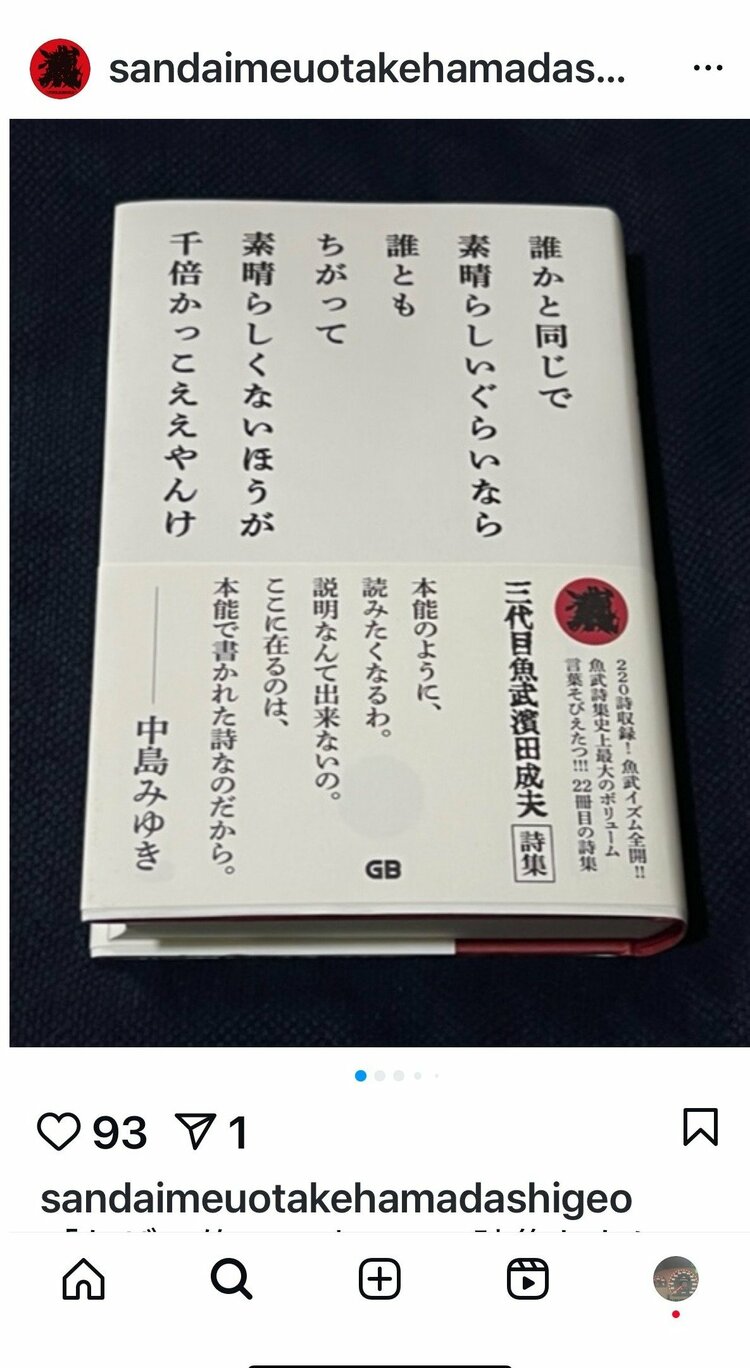 sandaimeuotakehamadas...
誰かと同じで
素晴らしいぐらいなら
誰とも
ちがって
素晴らしくないほうが
千倍かっこええやんけ
220詩収録！魚武イズム全開!!
魚武詩集史上最大のボリューム
言葉そびえたつ!!! 22冊目の詩集
三代目魚武濱田成夫 詩集
本能のように、
読みたくなるわ。
説明なんて出来ないの。
ここに在るのは、
本能で書かれた詩なのだから。
──中島みゆき
GB
93 1
sandaimeuotakehamadashigeo